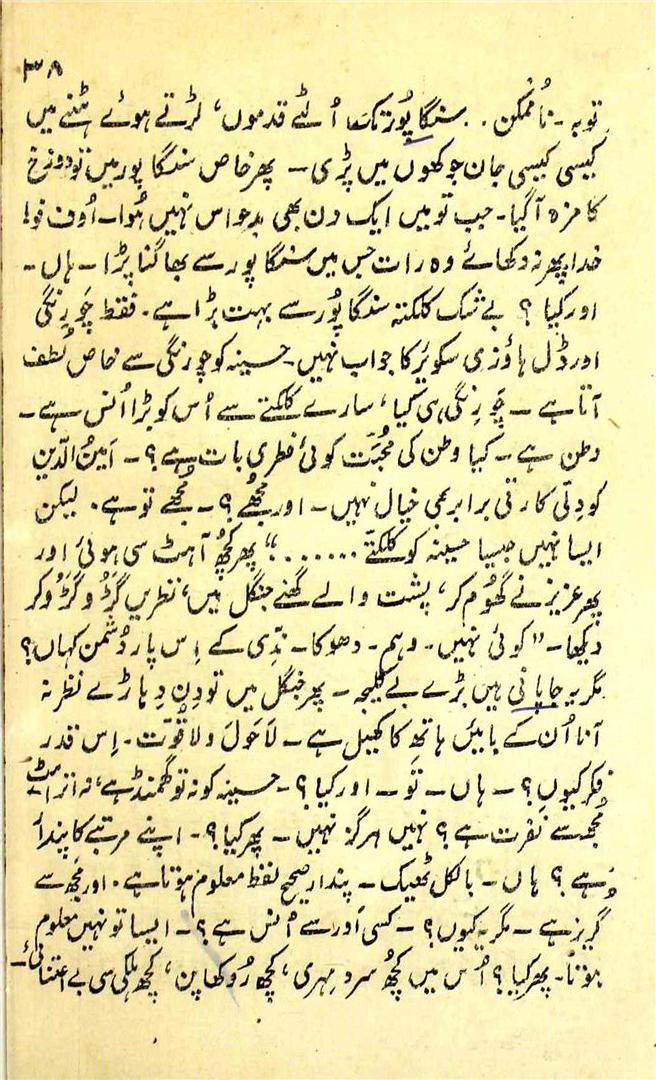 ۳۸
توبہ۔ نامُمکن . . سنگاپُور تک اُلٹے قدموں، لڑتے ہوئے ہٹنے میں
کیسی کیسی جان جوکھوں میں پڑی ۔ پھر خاص سنگاپور میں تو دوزخ
کا مزہ آگیا۔ جب تو میں ایک دن بھی بدحواس نہیں ہُوا۔ اُوف فوہ!
خدا پھر نہ دکھائے وہ رات جس میں سنگاپور سے بھاگنا پڑا ۔ ہاں ۔
اور کیا ؟ بے شک کلکتہ سنگاپُور سے بہت بڑا ہے۔ فقط چَورنگی
اور ڈل ہاؤزی سکوئر کا جواب نہیں۔ حسینہ کو چورنگی سے خاص لُطف
آتا ہے ۔ چَورِنگی ہی کیا، سارے کلکتے سے اُس کو بڑا اُنس ہے ۔
وطن ہے ۔ کیا وطن کی مُحبّت کوئی فطری بات ہے ؟ ۔ اَمینُ الدّین
کو دِلّی کا رتی برابر بھی خیال نہیں ۔ اور مُجھے ؟ ۔ مُجھے تو ہے۔ لیکن
ایسا نہیں جیسا حسینہ کو کلکتّے ........" پھر کچُھ آہٹ سی ہوئی اور
پھر عزیز نے گھُوم کر، پشت والے گھنے جنگل میں، نظریں گڑو گڑو کر
دیکھا ۔ "کوئی نہیں۔ وہم۔ دھوکا۔ ندّی کے اِس پار دُشمن کہاں؟
مگر یہ جاپانی ہیں بڑے بے کلیجہ ۔ پھر جنگل میں تو دِن دِہاڑے نظر نہ
آنا اُن کے بائیں ہاتھ کا کھیل ہے ۔ لَاحَولَ ولا قُوّت۔ اِس قدر
فکر کیوں ؟ ۔ ہاں ۔ تَو ۔ اور کیا ؟ ۔ حسینہ کو نہ تو گھمنڈ ہے، نہ اتراہٹ
مُجھ سے نفرت ہے ؟ نہیں ہرگز نہیں ۔ پھر کیا ؟ ۔ اپنے مرتبے کا پندار
ہے ؟ ہاں ۔ بالکل ٹھیک ۔ پندار صحیح لفظ معلوم ہوتا ہے۔ اور مُجھ سے
گریز ہے ۔ مگر یہ کیوں ؟ ۔ کسی اَور سے اُنس ہے ؟ ۔ ایسا تو نہیں معلوم
ہوتا۔ پھر کیا ؟ اُس میں کچُھ سرد مِہری، کچُھ رُوکھاپن، کچُھ ہلکی سی بے اعتنائی ۔